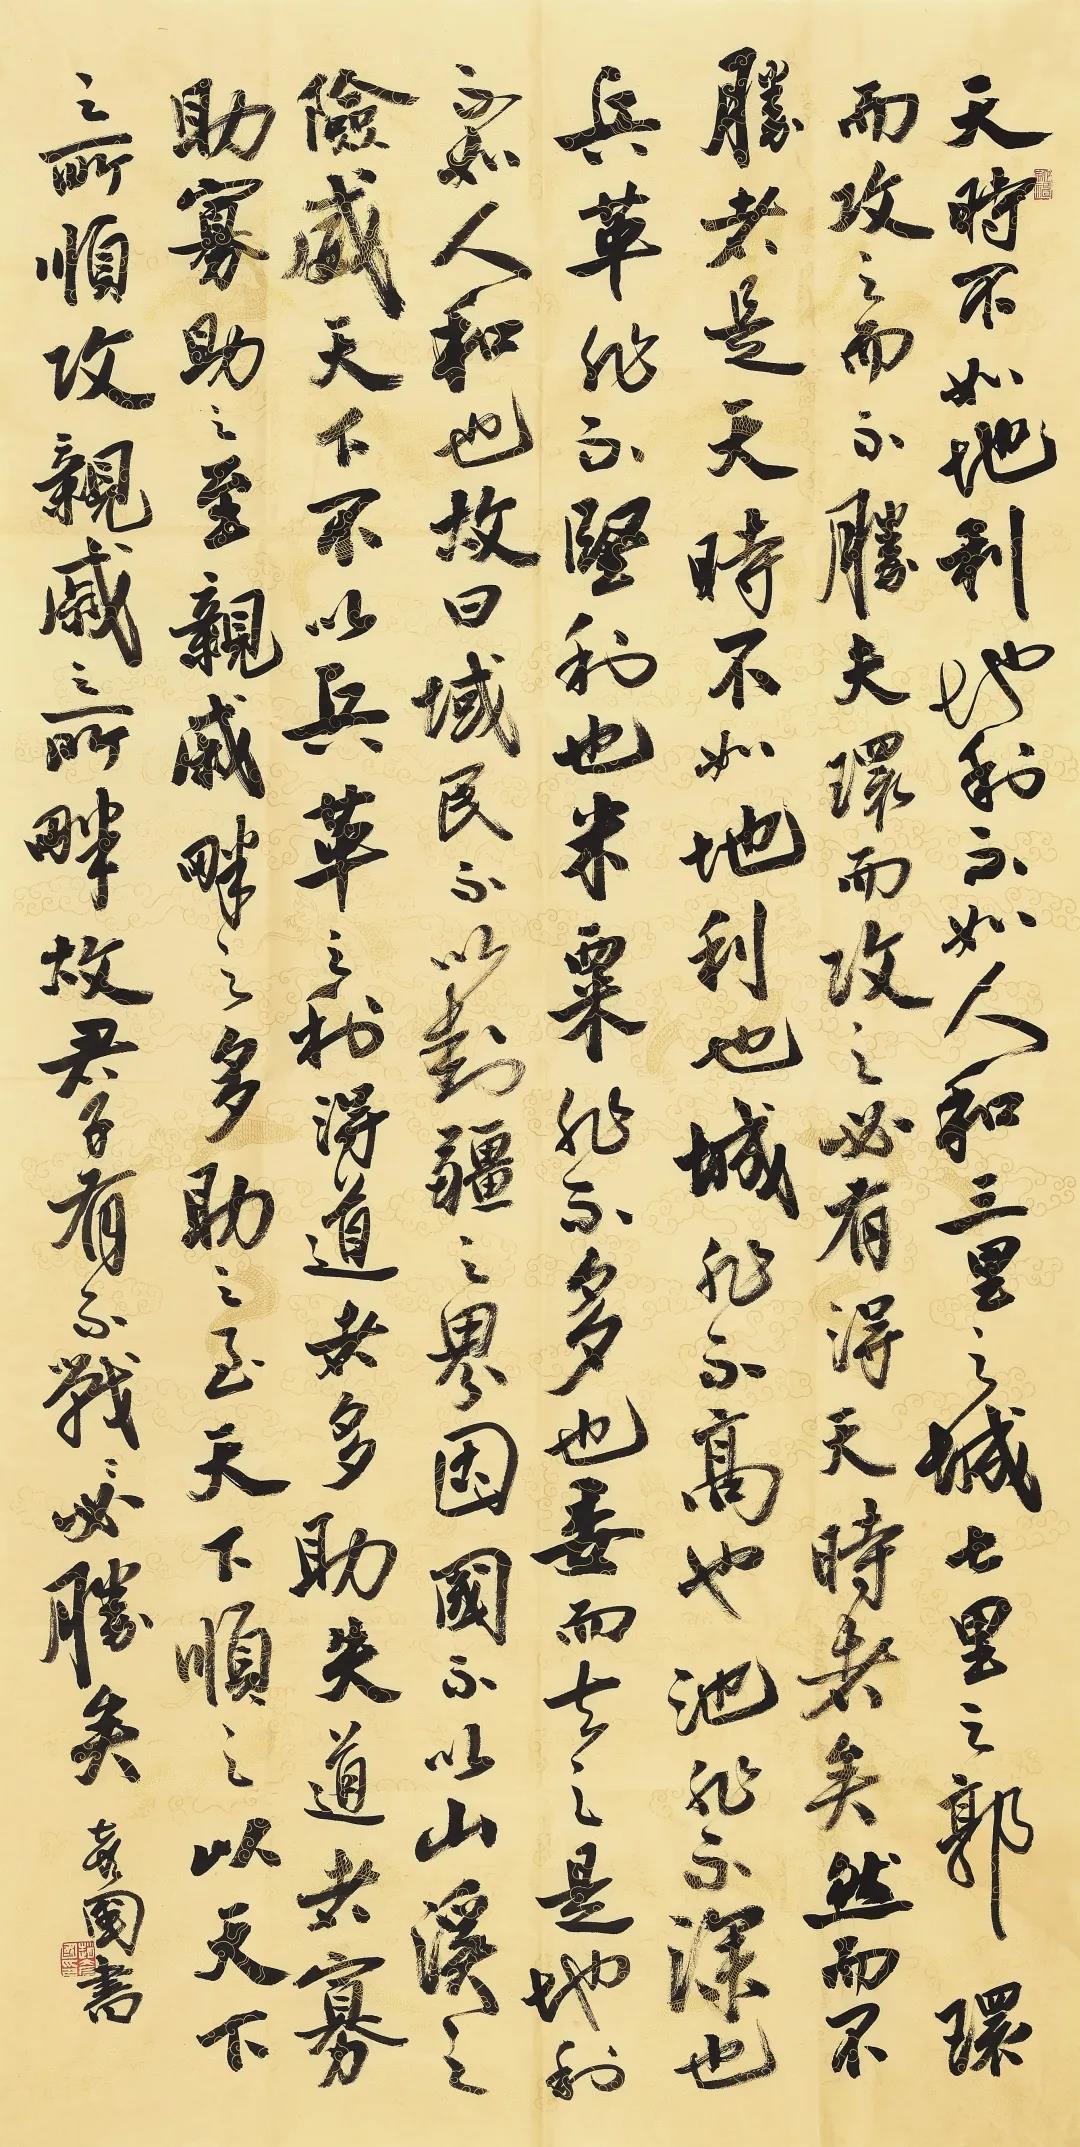 天時不如地利地利不如人和三里之城七里之郭環
而攻之而不勝夫環而攻之必有得天時者矣然而不
勝者是天時不如地利也城非不高也池非不深也
兵革非不堅利也米粟非不多也委而去之是地利
不如人和也故曰域民不以封疆之界固國不以山溪之
險威天下不以兵革之利得道者多助失道者寡
助寡助之至親戚畔之多助之至天下順之以天下
之所順攻親戚之所畔故君子有不戰〻必勝矣
國書